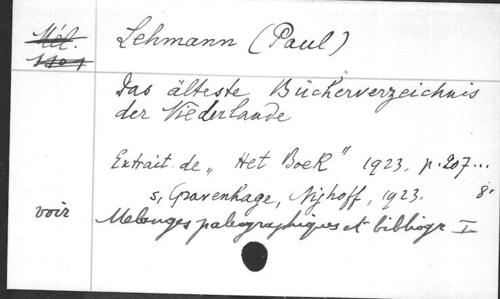 Mél.
Lehmann (Paul)
Das älteste Bücherverzeichnis
der Niederlande
Extrait de „Het Boek" 1923, p. 207...
s, Gravenhage, Nijhoff, 1923. 8°
voir Mélanges paléographiques et bibliogr I